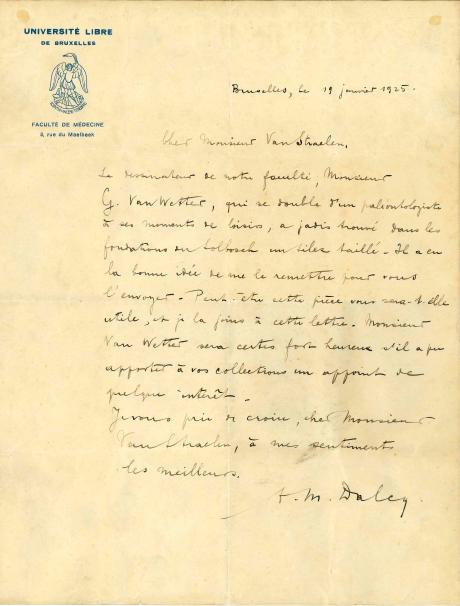 UNIVERSITÉ LIBRE
DE BRUXELLES
FACULTÉ DE MÉDECINE
3, rue du Maelbeek
Bruxelles, le 19 janvier 1925.
Cher Monsieur Van Straelen,
Le dessinateur de notre faculté, Monsieur
G. Van Wetter, qui se double d'un paléontologiste
à ses moments de loisirs, a jadis trouvé dans les
fondations du Solbosch un silex taillé. Il a eu
la bonne idée de me le remettre pour vous
l'envoyer. Peut-être cette pièce vous sera-t-elle
utile, et je la joins à cette lettre. Monsieur
Van Wetter sera certes fort heureux s'il a pu
apporter à vos collections un appoint de
quelque intérêt.
Je vous prie de croire, cher Monsieur
Van Straelen, à mes sentiments
les meilleurs.
A. M. Dalcq.